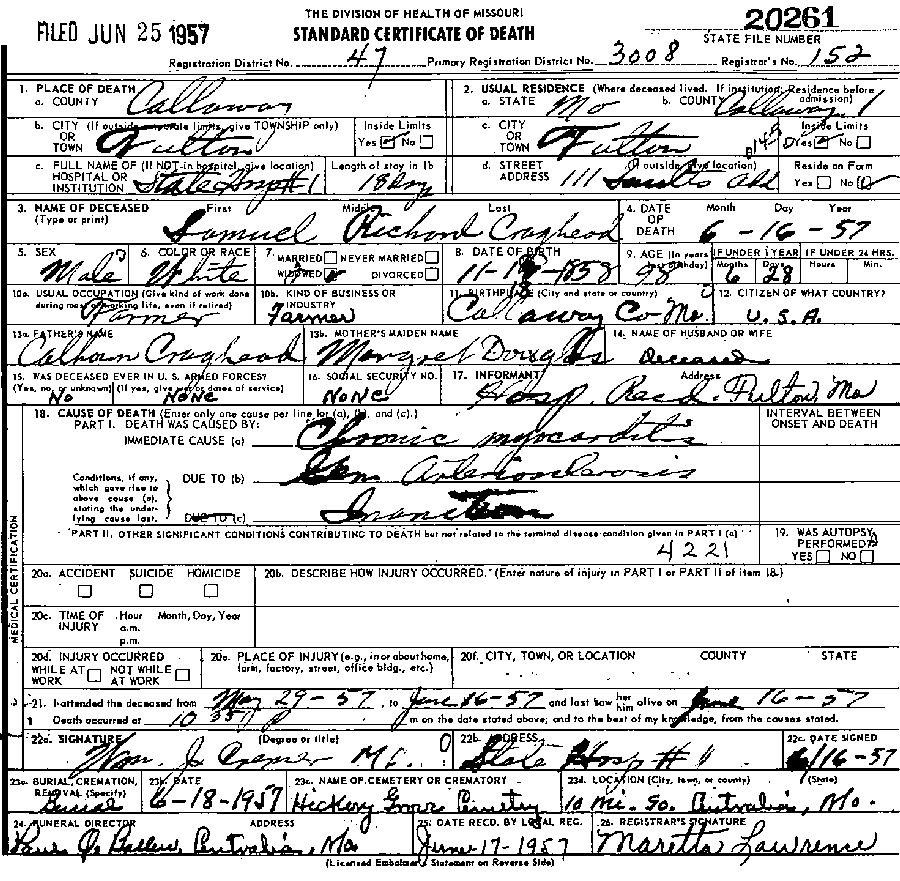 FILED JUN 25 1957
THE DIVISION OF HEALTH OF MISSOURI
STANDARD CERTIFICATE OF DEATH
20261
STATE FILE NUMBER
Registration District No. 47 Primary Registration District No. 3008 Registrar's No. 152
1. PLACE OF DEATH
a. COUNTY Callaway
2. USUAL RESIDENCE (Where deceased lived. If institution: Residence before admission)
a. STATE Mo b. COUNTY Callaway
b. CITY (If outside corporate limits, give TOWNSHIP only) OR TOWN Fulton
Inside Limits Yes No
c. CITY OR TOWN Fulton
Inside Limits Yes No
c. FULL NAME OF (If NOT in hospital, give location) HOSPITAL OR INSTITUTION State Hosp #1
Length of stay in 1b 18 day
d. STREET ADDRESS (If outside, give location) 111
Reside on Farm Yes No
3. NAME OF DECEASED (Type or print) First Middle Last
Samuel Richard Craghead
4. DATE OF DEATH Month Day Year
6-16-57
5. SEX Male
6. COLOR OR RACE White
7. MARRIED NEVER MARRIED WIDOWED DIVORCED
8. DATE OF BIRTH 11-18-1858
9. AGE (In years last birthday) 98
IF UNDER 1 YEAR Months 6 Days 28
IF UNDER 24 HRS. Hours Min.
10a. USUAL OCCUPATION (Give kind of work done during most of working life, even if retired) Farmer
10b. KIND OF BUSINESS OR INDUSTRY Farmer
11. BIRTHPLACE (City and state or country) Callaway Co Mo.
12. CITIZEN OF WHAT COUNTRY? U.S.A.
13a. FATHER'S NAME Calhoun Craghead
13b. MOTHER'S MAIDEN NAME Margret Douglas
14. NAME OF HUSBAND OR WIFE Deceased
15. WAS DECEASED EVER IN U. S. ARMED FORCES? (Yes, no, or unknown) (If yes, give war or dates of service) No None
16. SOCIAL SECURITY NO. None
17. INFORMANT Address Hosp. Recd. Fulton, Mo
18. CAUSE OF DEATH (Enter only one cause per line for (a), (b), and (c).)
PART I. DEATH WAS CAUSED BY:
IMMEDIATE CAUSE (a) Chronic myocarditis
INTERVAL BETWEEN ONSET AND DEATH
Conditions, if any, which gave rise to above cause (a), stating the underlying cause last.
DUE TO (b) Gen Arteriosclerosis
DUE TO (c) Inanition
PART II. OTHER SIGNIFICANT CONDITIONS CONTRIBUTING TO DEATH but not related to the terminal disease condition given in PART I (a)
4221
19. WAS AUTOPSY PERFORMED? YES NO
MEDICAL CERTIFICATION
20a. ACCIDENT SUICIDE HOMICIDE
20b. DESCRIBE HOW INJURY OCCURRED. (Enter nature of injury in PART I or PART II of item 18.)
20c. TIME OF INJURY Hour a.m. p.m. Month, Day, Year
20d. INJURY OCCURRED WHILE AT WORK NOT WHILE AT WORK
20e. PLACE OF INJURY (e.g., in or about home, farm, factory, street, office bldg., etc.)
20f. CITY, TOWN, OR LOCATION COUNTY STATE
21. I attended the deceased from May 29-57, to June 16-57 and last saw her him alive on June 16-57
Death occurred at 10 35 P m on the date stated above; and to the best of my knowledge, from the causes stated.
22a. SIGNATURE (Degree or title) Wm. J. Cremer M.D.
22b. ADDRESS State Hosp #1
22c. DATE SIGNED 6/16-57
23a. BURIAL, CREMATION, REMOVAL (Specify) Burial
23b. DATE 6-18-1957
23c. NAME OF CEMETERY OR CREMATORY Hickory Grove Cemetery
23d. LOCATION (City, town, or county) (State) 10 mi. So. Auxvasse, Mo.
24. FUNERAL DIRECTOR ADDRESS Mo
25. DATE RECD. BY LOCAL REG. June-17-1957
26. REGISTRAR'S SIGNATURE Maretta Lawrence
(Licensed Embalmer's Statement on Reverse Side)